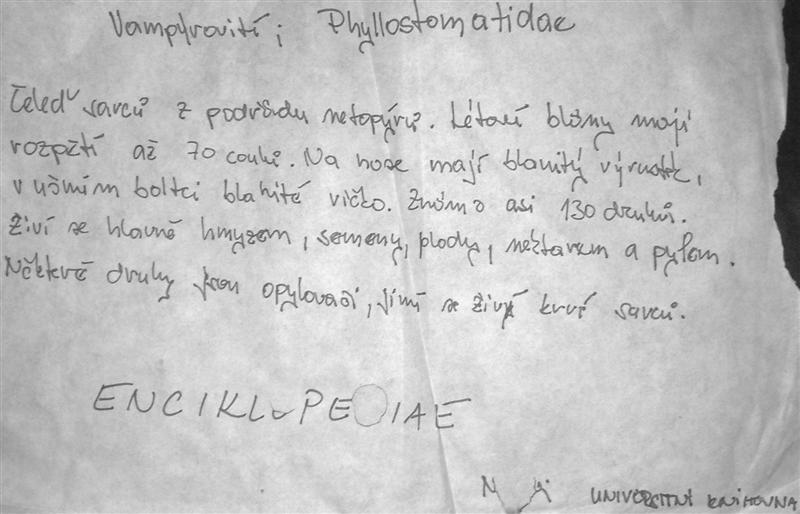 Vampýrovití; Phyllostomatidae
Čeleď savců z podřádu netopýrů. Létací blány mají
rozpětí až 70 coulů. Na nose mají blanitý výrustek,
v ušním boltci blanité víčko. Známo asi 130 druhů.
Živí se hlavně hmyzem, semeny, plody, nektarem a pylem.
Některé druhy jsou opylovači, jiní se živý krví savců.
ENCIKLOPEDIAE
UNIVERSITNÍ KNIHOVNA